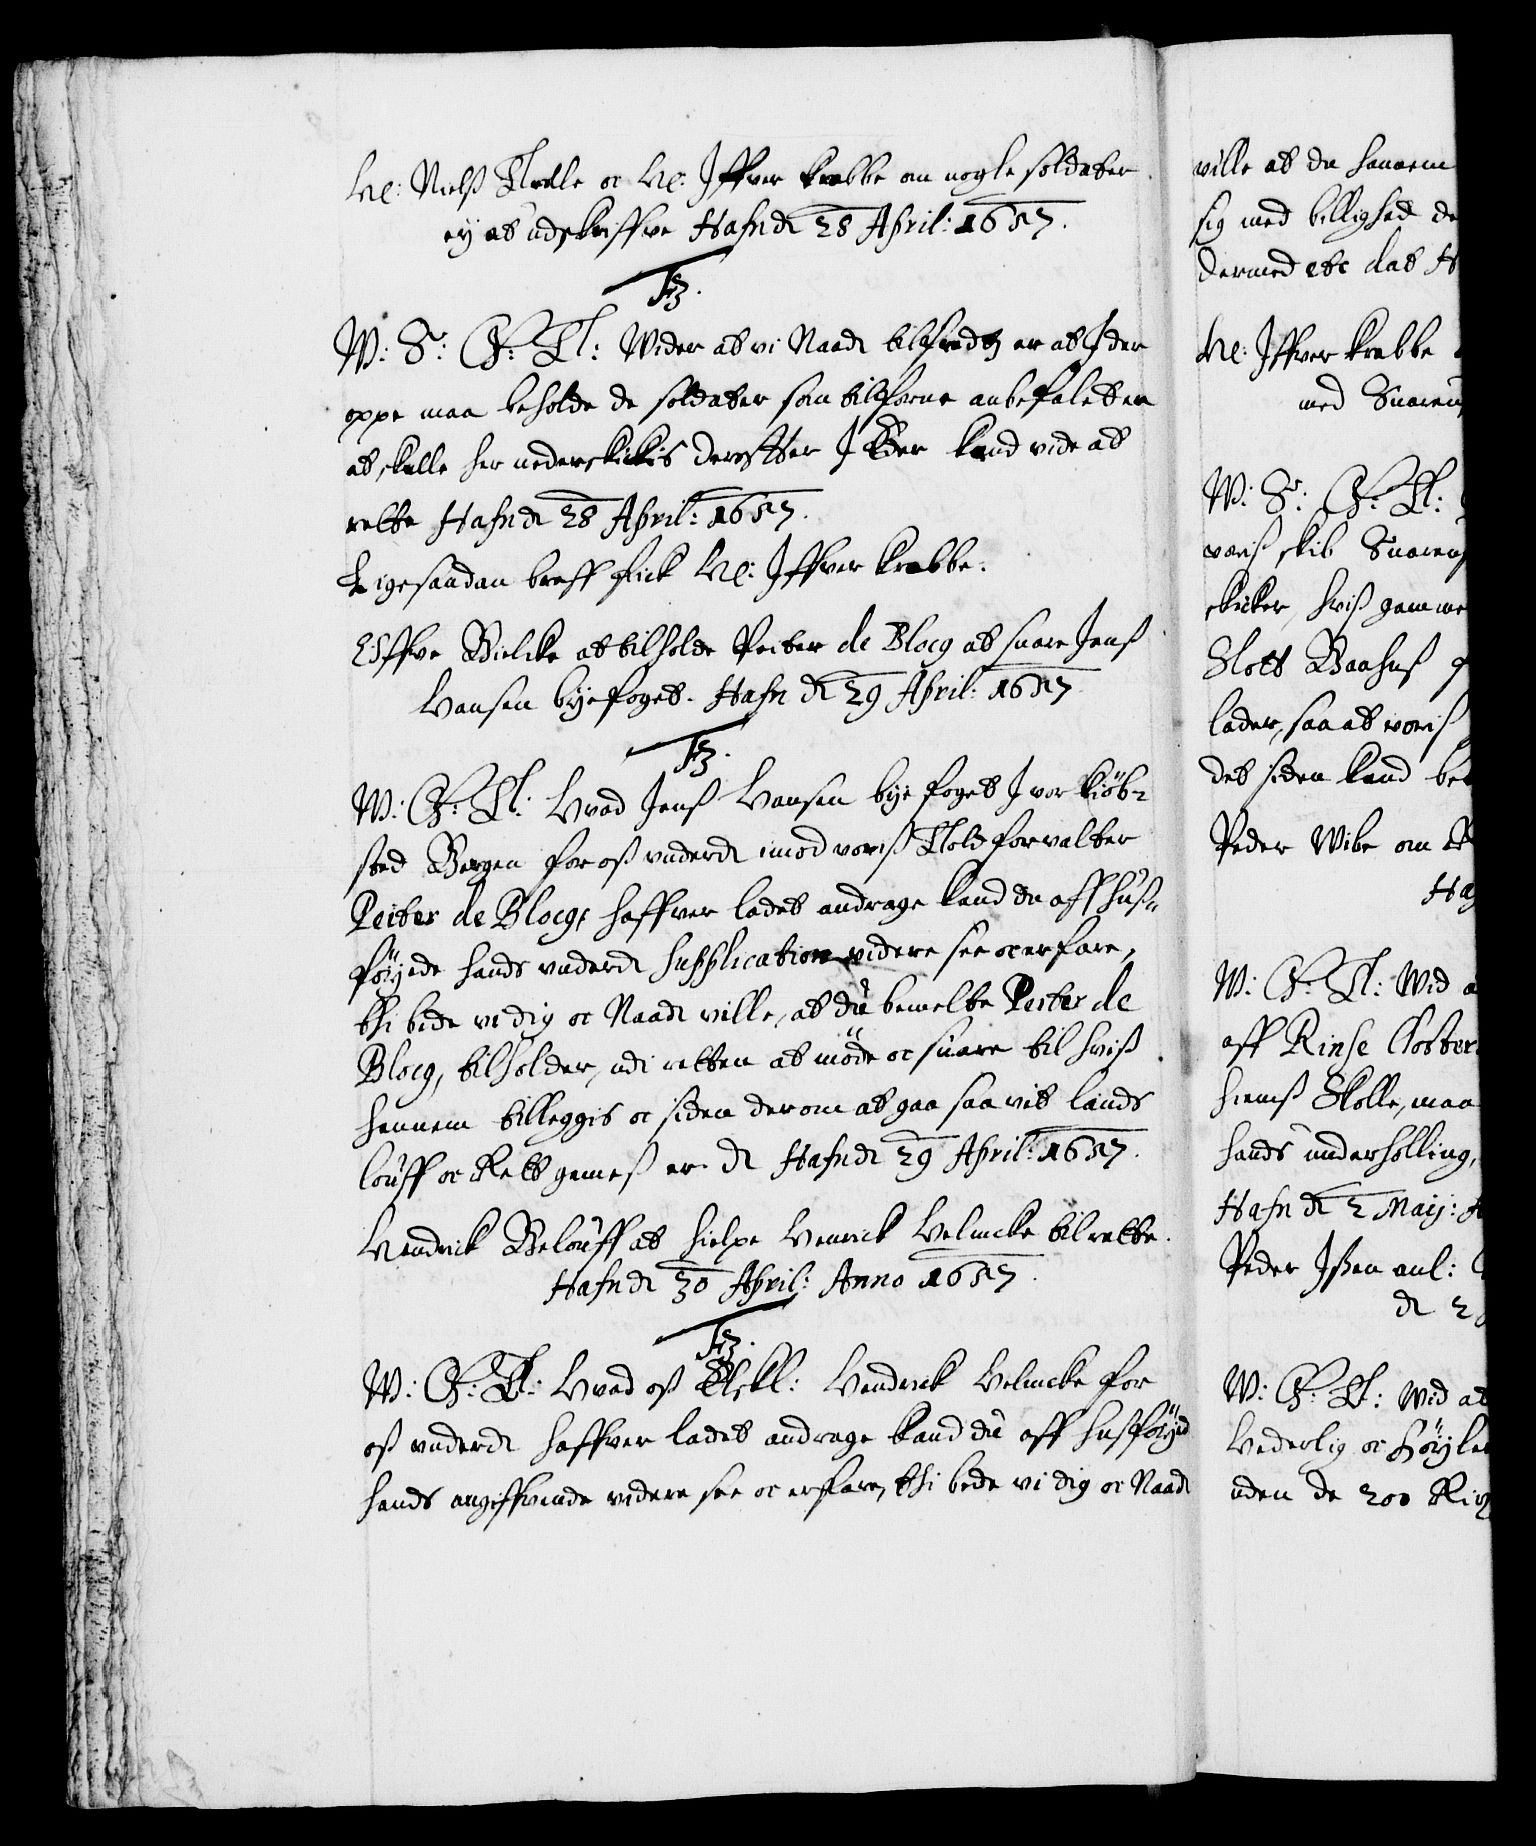 He: Nielß Trolle oc He: Iffver Krabbe om nogle soldater
ey at udskriffve Hafn d 28 April: 1657.
F3.
W: S: G: T: Wider at vi Naad: tilfreds er at I der
oppe maa beholde de soldater som tilforne anbefalet er
at skulle her nederskickis derefter I Eder kand vide at
rette Hafn d 28 April: 1657.
Ligesaadan breff fick He: Iffver Krabbe.
Offve Bielcke at tilholde Peiter de Blocq at suare Jenß
Hansen byefoget. Hafn d 29 April: 1657
F3.
W: G: T: Hvad Jenß Hansen bye foget I vor Kiöb-
sted Bergen for oß underd imod voriß Toldforvalter
Peiter de Blocq, haffver ladet andrage kand du aff huß-
föyede hands underd Supplication videre see oc erfare,
thi bede vi dig oc Naad ville, at du bemelte Peiter de
Blocq, tilholder, udi retten at möde oc suare til hviß
hannem tilleggis oc siden derom at gaa saavit lands
louff oc Rett gemeß er. d Hafn d 29 April: 1657.
Hendrick Belouff at hielpe Henrick Helmcke til rette.
Hafn d 30 April: Anno 1657.
F3.
W: G: T: Hvad oß Elskl: Hendrick Helmcke for
oß underd haffver ladet andrage kand du aff hußföyed
hands angiffvende videre see oc erfare, thi bede vi dig oc Naad
ville at du hannem
sig med billighed de
dermed etc dat H
He: Iffver Krabbe
med Snaren
W: S: G: T:
voriß skib Snaren
skicker, hviß gamme
Slott Baahuß
lader, saa at voriß
det siden kand be
Peder Wibe om
Haf
W: G: T: Wid a
aff Rinse
hiemß Skolle, maa
hands underholling,
Hafn d 2 Maij:
Peder Ißen anl:
d 2
W: G: T: Wid at
Hæderlig oc Höylæ
uden de 200 Rix